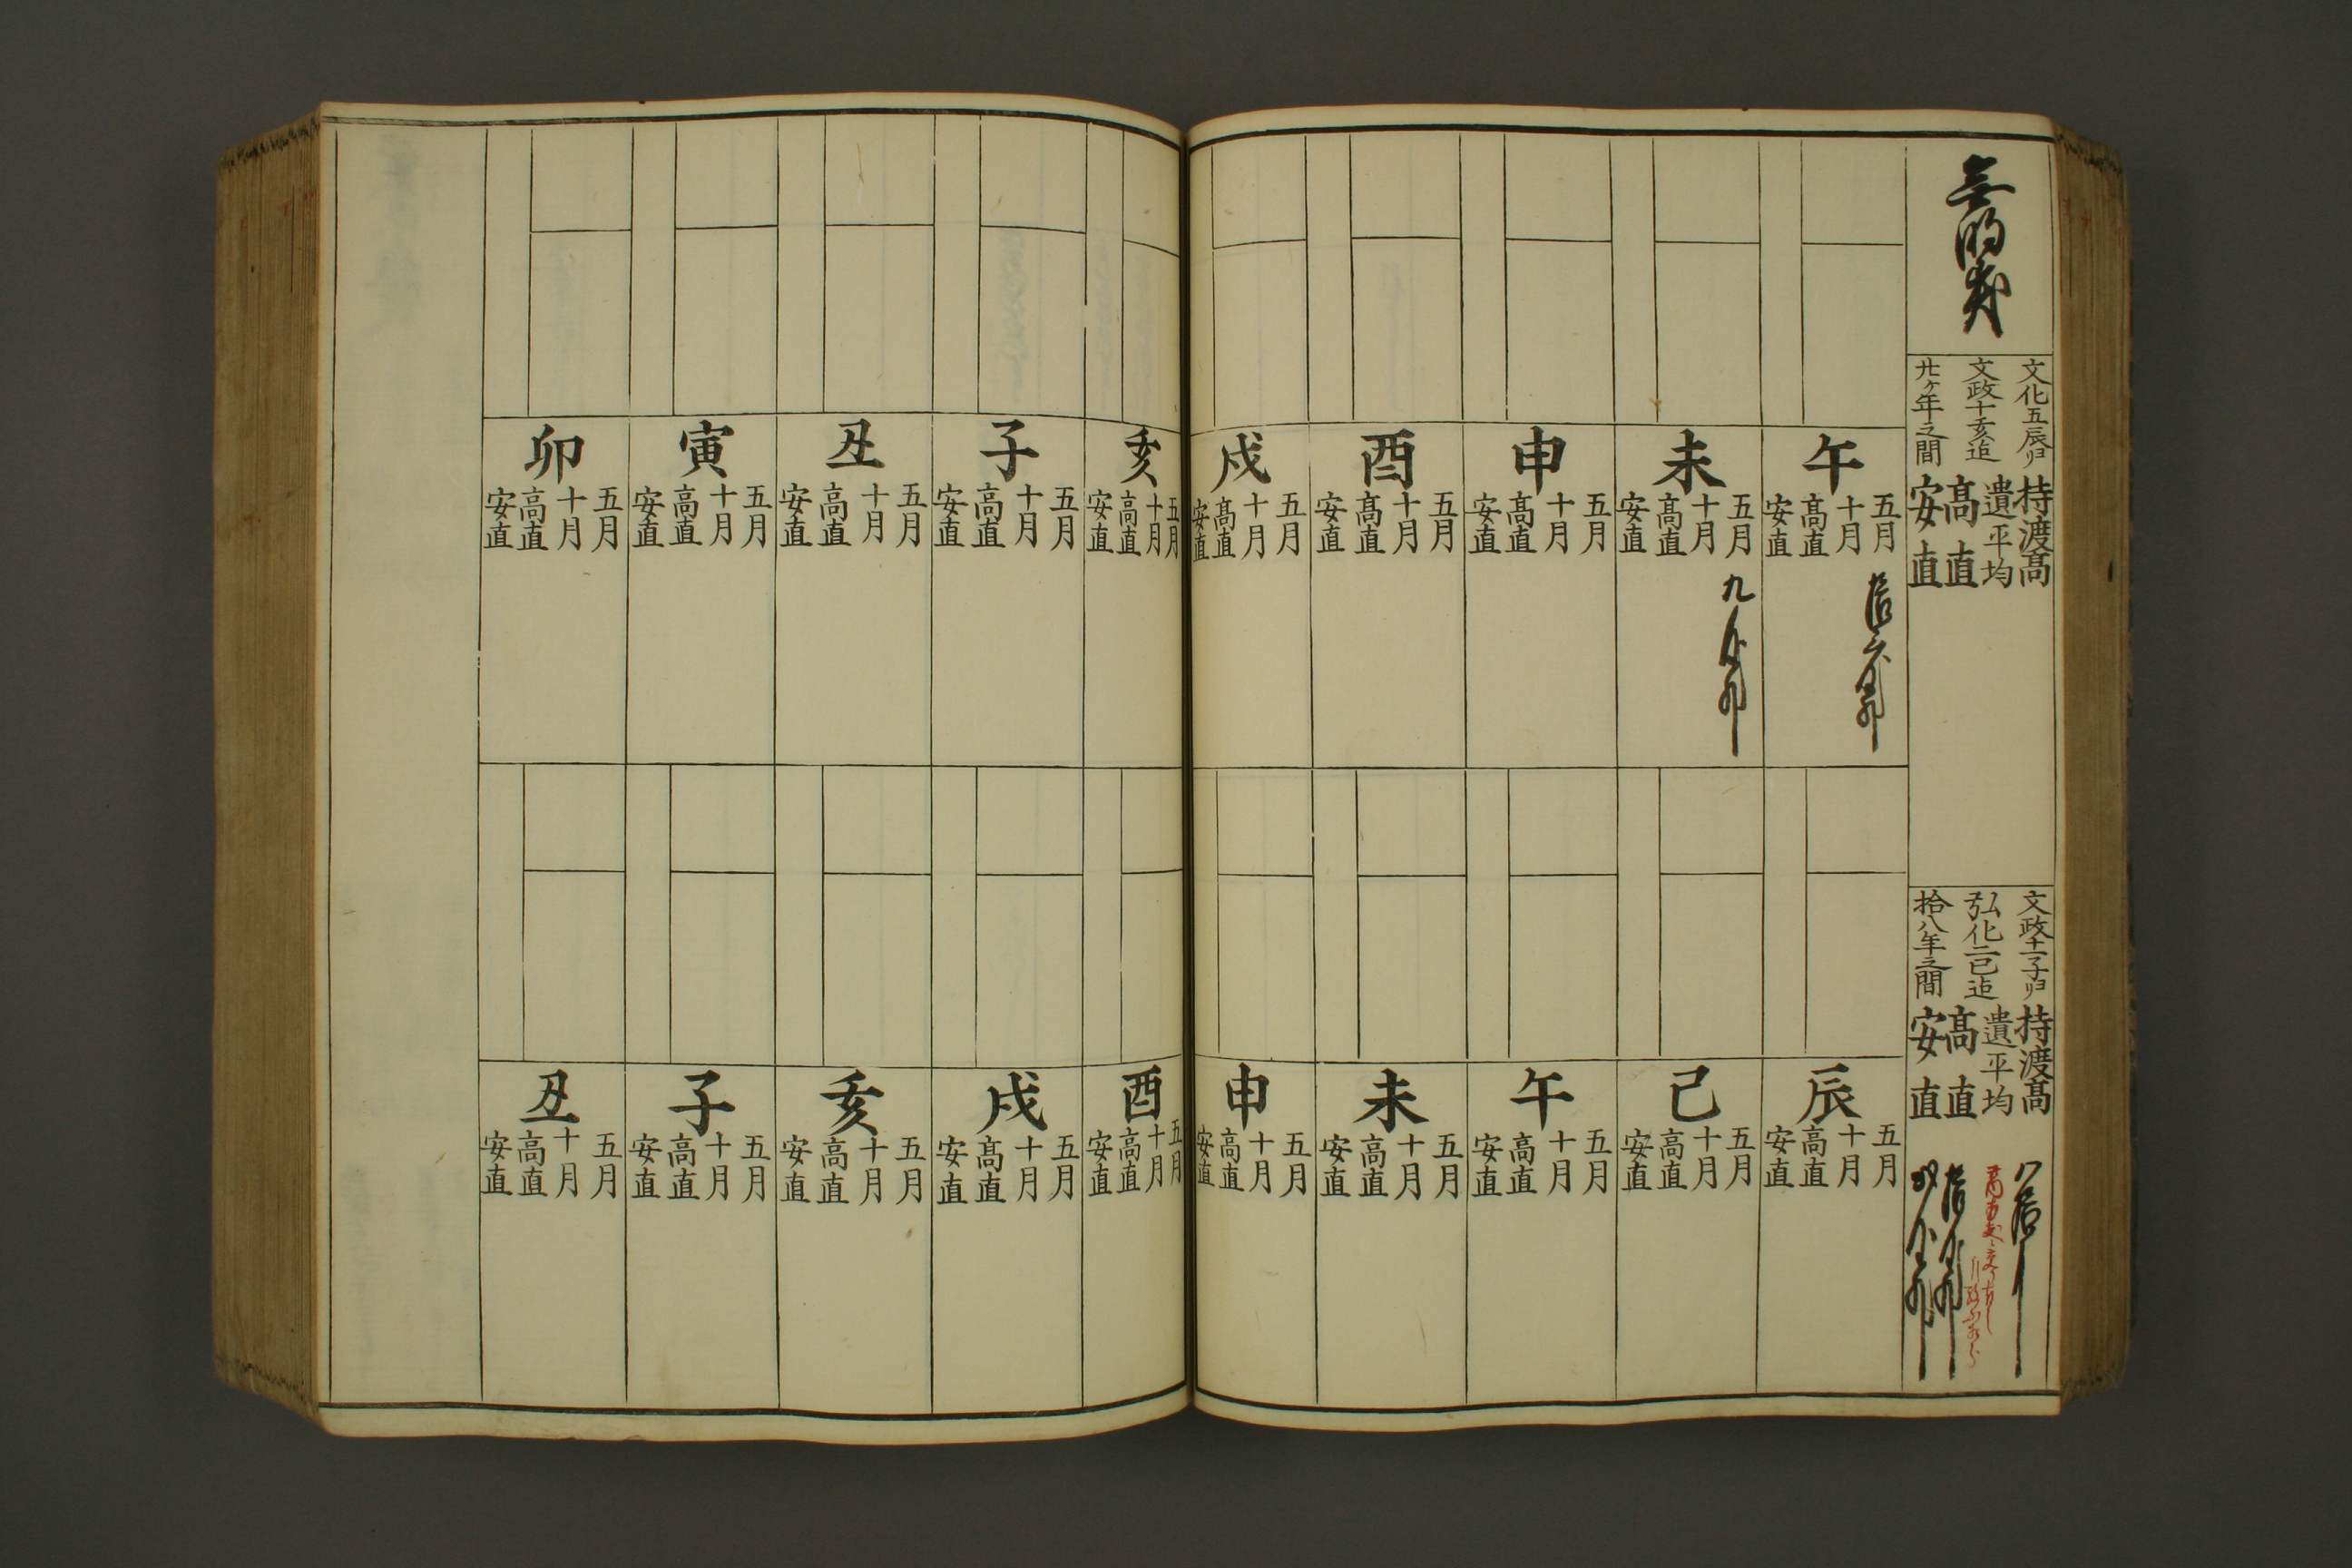 文化五辰ヨリ
文政十亥迄
廿ケ年之間
持渡高
遺平均
高直
安直
文政十一子ヨリ
弘化二巳迄
拾八年之間
持渡高
遺平均
高直
安直
午
五月
十月
高直
安直
未
五月
十月
高直
安直
申
五月
十月
高直
安直
酉
五月
十月
高直
安直
戌
五月
十月
高直
安直
亥
五月
十月
高直
安直
子
五月
十月
高直
安直
丑
五月
十月
高直
安直
寅
五月
十月
高直
安直
卯
五月
十月
高直
安直
辰
五月
十月
高直
安直
巳
五月
十月
高直
安直
午
五月
十月
高直
安直
未
五月
十月
高直
安直
申
五月
十月
高直
安直
酉
五月
十月
高直
安直
戌
五月
十月
高直
安直
亥
五月
十月
高直
安直
子
五月
十月
高直
安直
丑
五月
十月
高直
安直